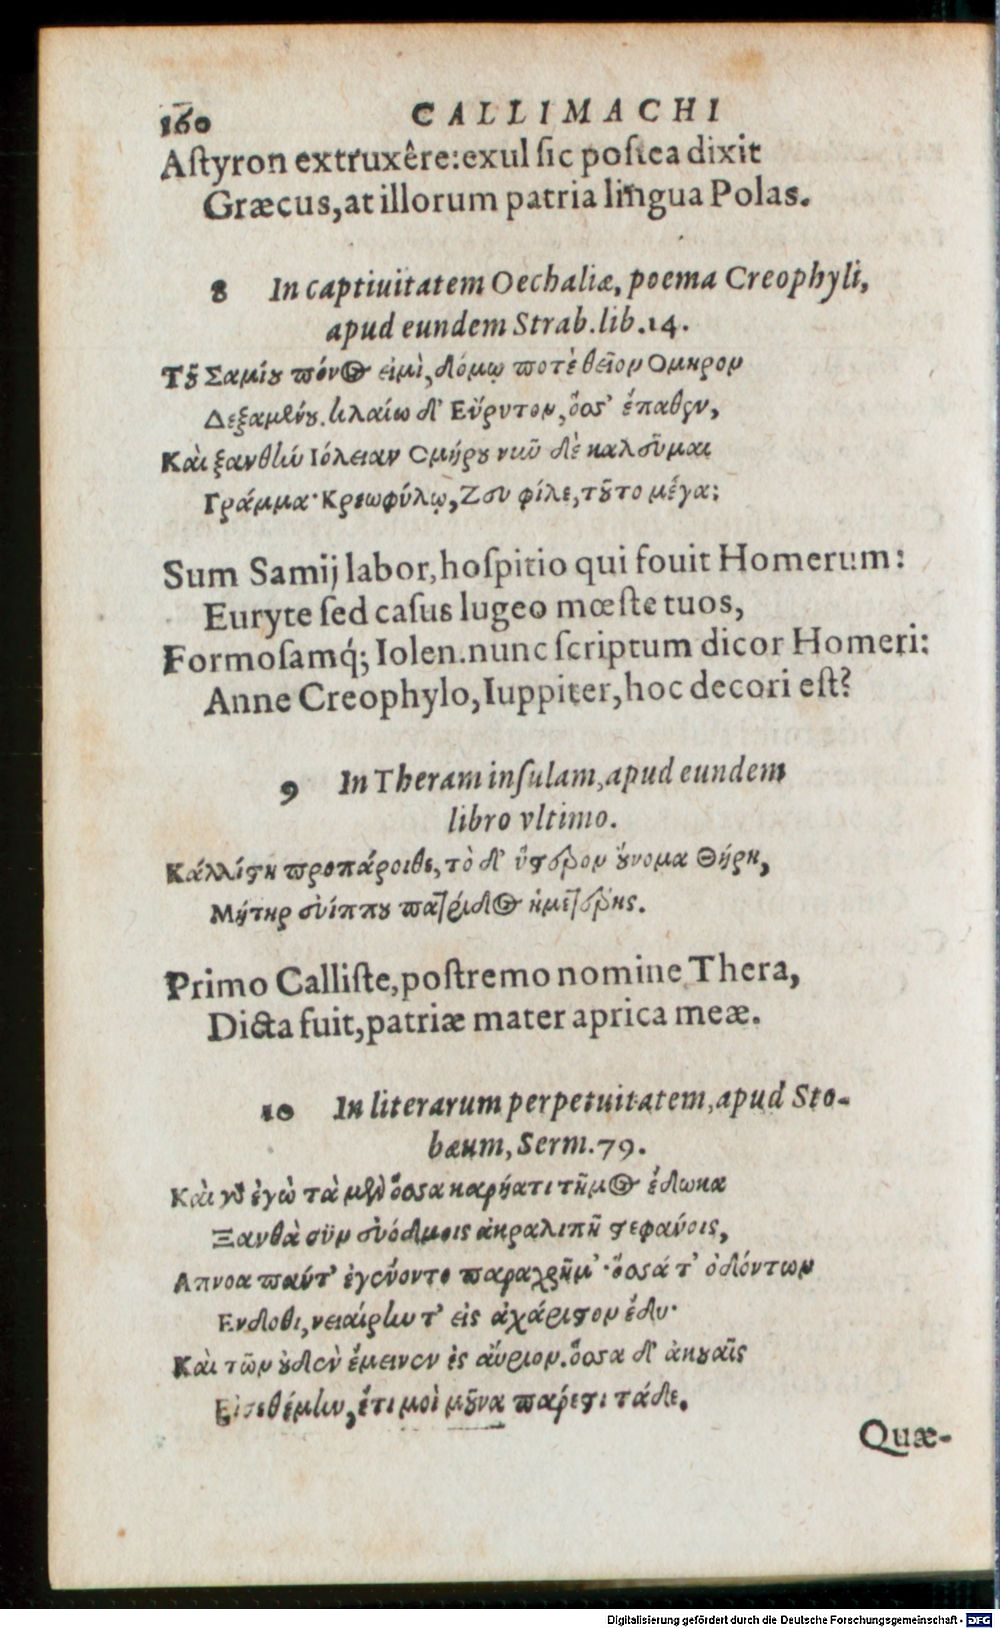 160 CALLIMACHI
Aſtyron extruxêre:exul ſic poſtea dixit
Græcus,at illorum patria lingua Polas.
8 In captiuitatem Oechaliæ, poema Creophyli,
apud eundem Strab.lib.14.
Τȣ͂ Σαμίȣ πόνος εἰμὶ, δόμῳ ποτὲ θεῖον Ομηρον
Δεξαμένȣ. κλαίω δ' Εὔρυτον, ὅσς' ἔπαθεν,
Καὶ ξανθὴν Ιόλειαν Ομήρȣ νιῦ δὲ καλεῦμαι
Γράμμα· Κρεωφύλῳ, Ζευ φίλε, τȣ͂το μέγα;
Sum Samij labor,hoſpitio qui fouit Homerum:
Euryte ſed caſus lugeo mœſte tuos,
Formoſamq́; Iolen.nunc ſcriptum dicor Homeri:
Anne Creophylo,Iuppiter,hoc decori eſt?
9 In Theram inſulam,apud eundem
libro vltimo.
Κάλλίστη προπάροιθε, τὸ δ' ὕστερον ȣ́νομα Θήρη,
Μήτηρ εὐίππȣ πατρίδος ἡμετέρης.
Primo Calliſte,poſtremo nomine Thera,
Dicta fuit,patriæ mater aprica meæ.
10 In literarum perpetuitatem,apud Sto-
bæum, Serm.79.
Καὶ γὸ ἐγὼ τὰ μὲν ὅσσα καρήατι τῆμος ἔδωκα
Ξανθὰ σὺν εὐόδμοις ἁκραλιπῆ στεφάνοις,
Απνοα πάντ' ἐγένοντο παραχρῆμ'·ὅσσά τ' ὀδόντων
Ενδοθι, νειαίρην τ' εἰς ἀχάριστον ἔδυ·
Καὶ τῶν ȣ̓δὲν ἔμεινεν ἐς αὔριον. ὅσσα δ' ἀκȣαῖς
Εἰσεθέμην, ἔτι μοὶ μȣ͂να πάρεστι τάδε.
Quæ-
Digitalisierung gefördert durch die Deutsche Forschungsgemeinschaft - DFG